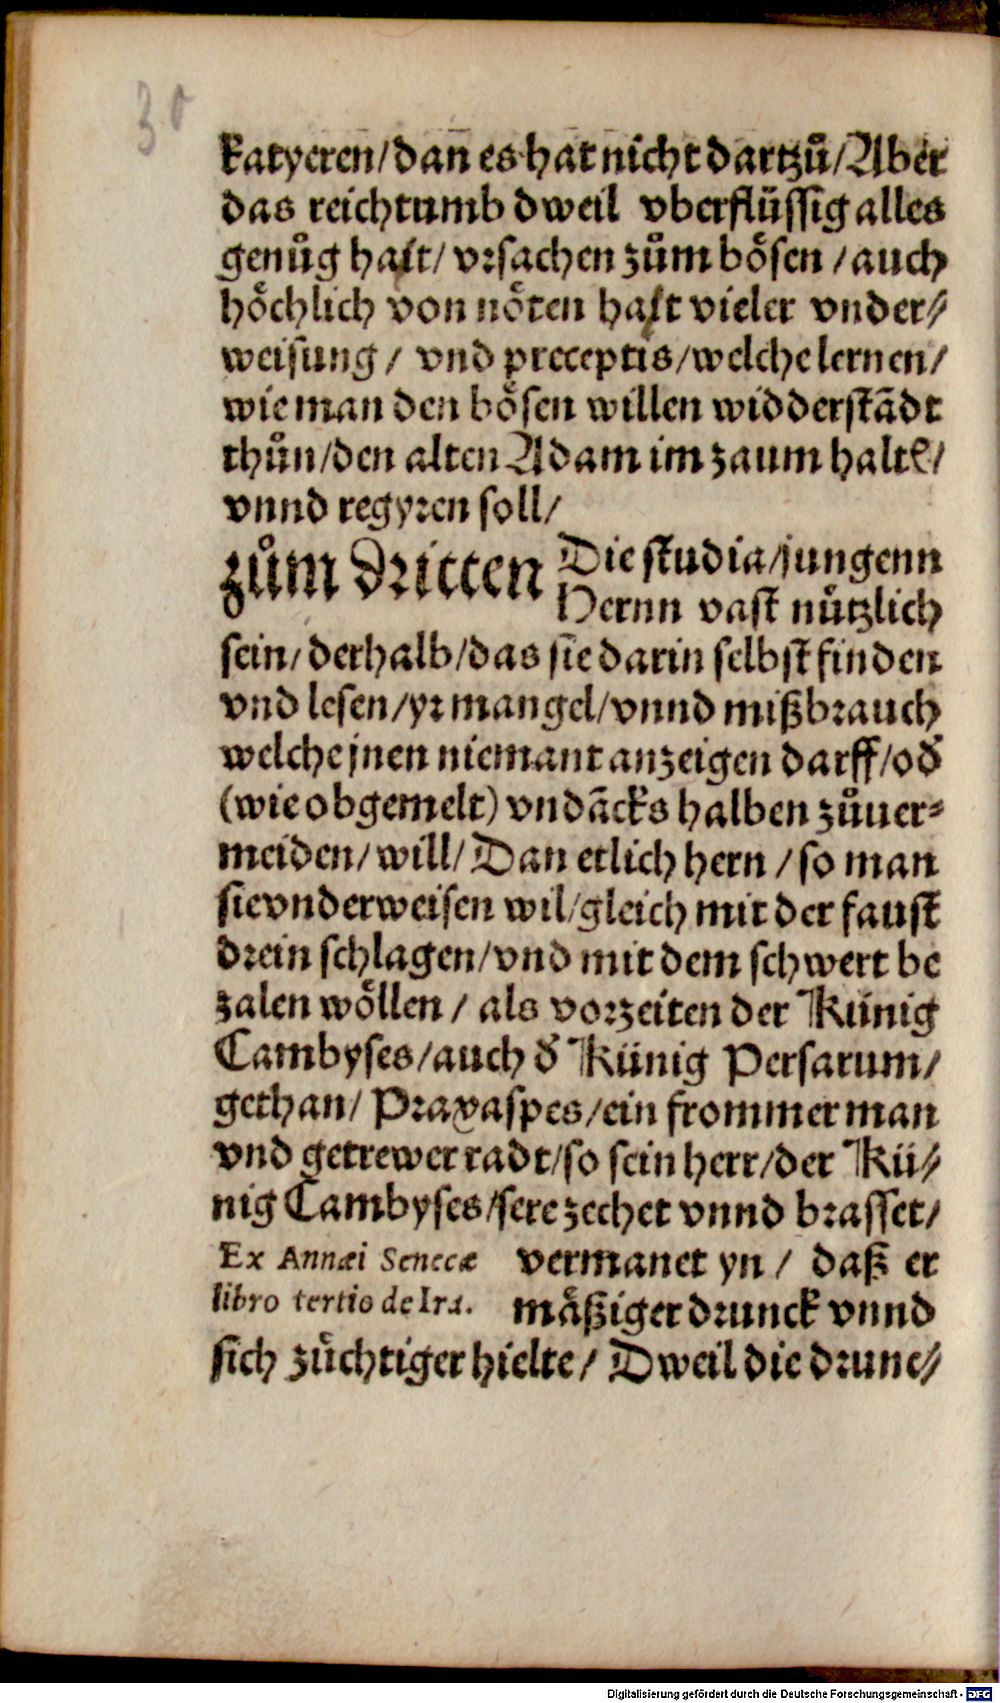 30
katyeren/dan̄ es hat nicht dartzů/Aber
das reichtumb dweil vberflüssig alles
genůg haſt/ vrsachen zům bösen /auch
höchlich von nöten haſt vieler vnder⸗
weisung/ vnd preceptis/welche lernen/
wie man den bösen willen widderstādt
thůn/den alten Adam im zaum haltē/
vnnd regyren soll/
zům dritten Die studia/jungenn
Hernn vast nützlich
sein/derhalb/das sie darin selbst finden
vnd lesen/yr mangel/vnnd mißbrauch
welche jnen niemant anzeigen darff/od̄
(wie obgemelt) vndācks halben zůuer⸗
meiden/will/Dan etlich hern /so man
sie vnderweisen wil/gleich mit der faust
drein schlagen/vnd mit dem schwert be
zalen wöllen/ als vorzeiten der Künig
Cambyses/auch d̄ Künig Persarum/
gethan/ Praxaspes/ein frommer man
vnd getrewer radt/so sein herr/der Kü⸗
nig Cambyses/sere zechet vnnd brasset/
Ex Annæi Senecæ vermanet yn/ daß er
libro tertio de Ira. mäßiger drunck vnnd
sich züchtiger hielte/ Dweil die drunc⸗
Digitalisierung gefördert durch die Deutsche Forschungsgemeinschaft - DFG